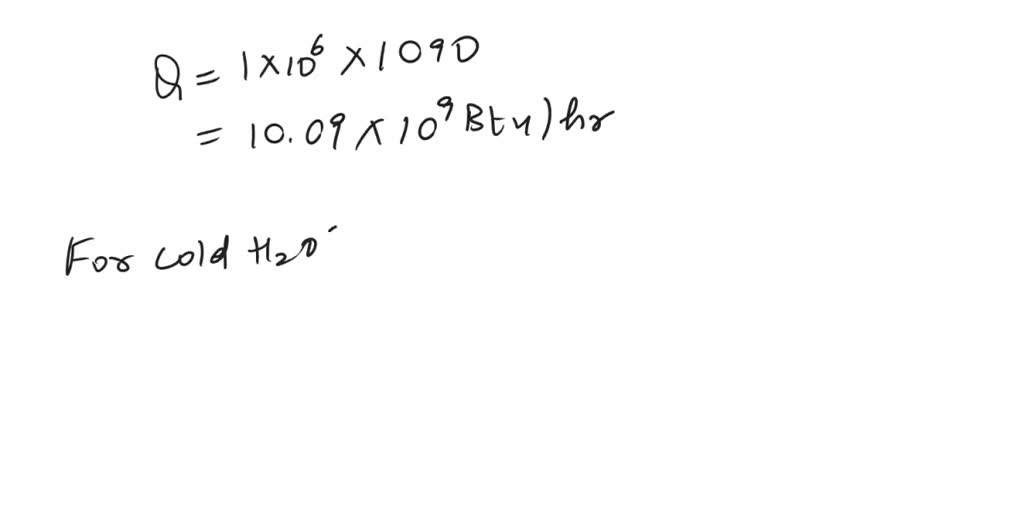 Q = 1×10⁶ ×1090
= 10.09 × 10⁹ Btu)hr
For cold H₂O